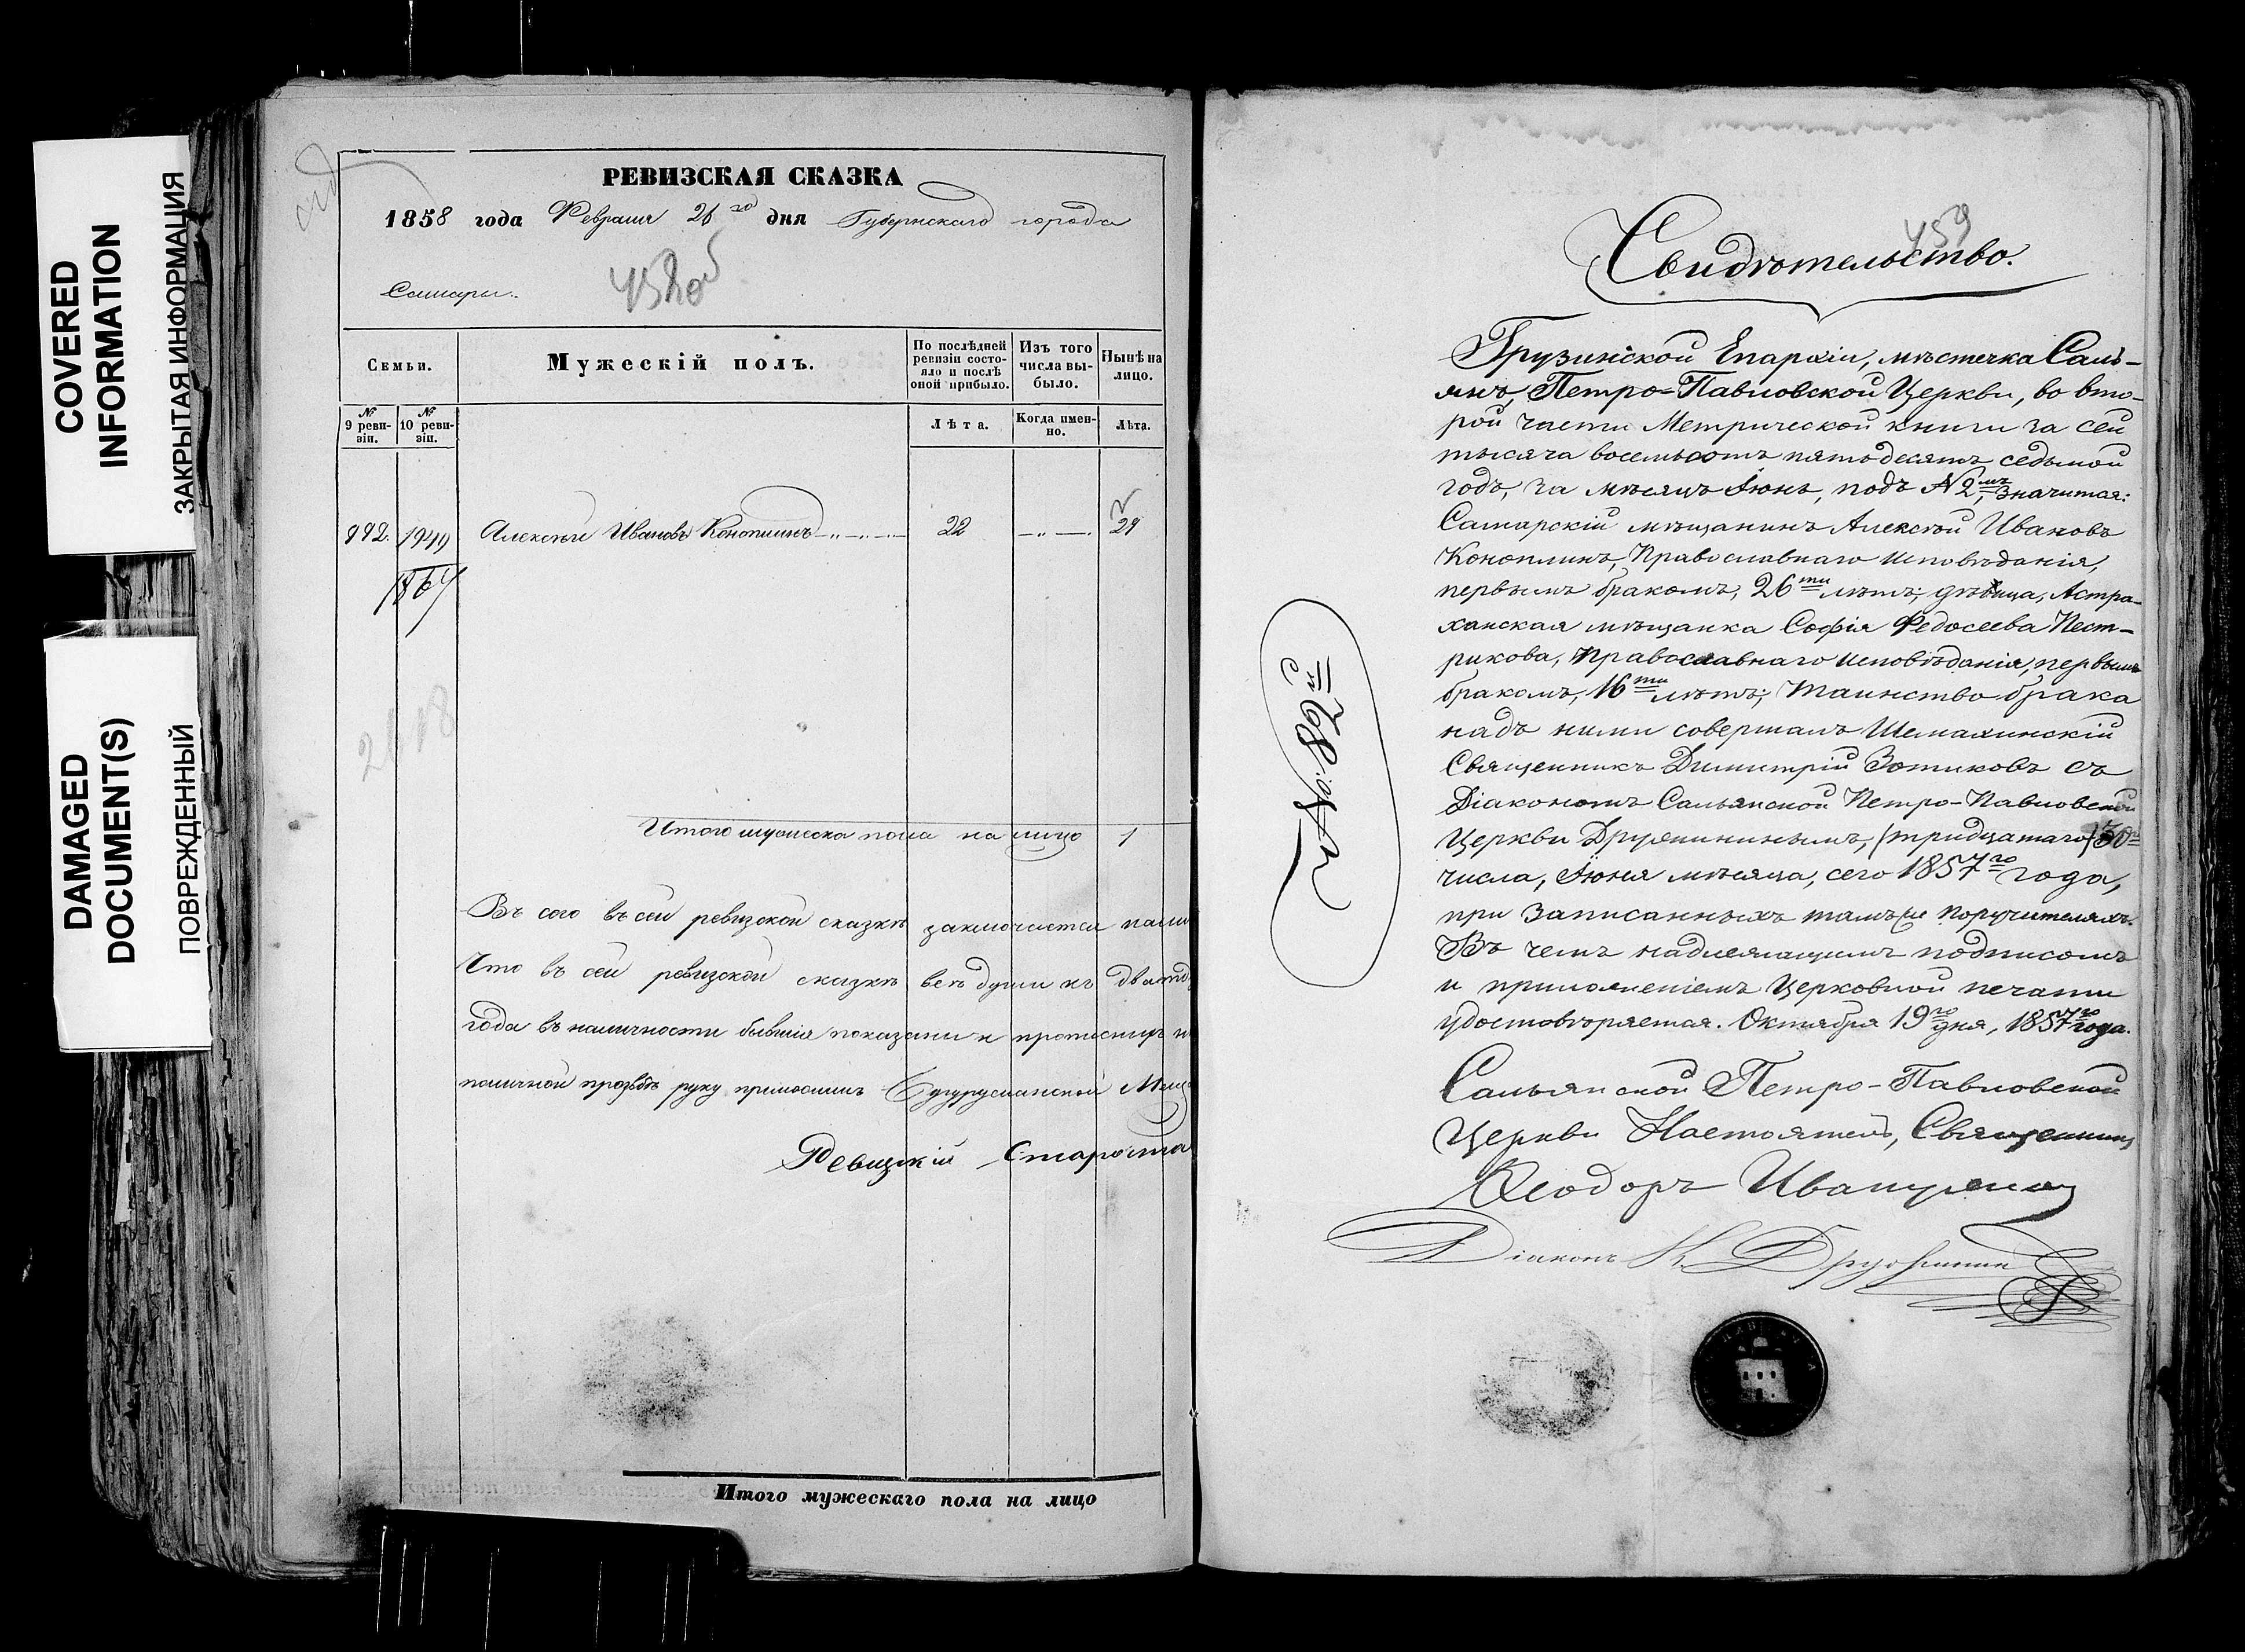 COVERED
INFORMATION
ЗАКРЫТАЯ ИНФОРМАЦИЯ
DAMAGED
DOCUMENT(S)
ПОВРЕЖДЕННЫЙ
РЕВИЗСКАЯ СКАЗКА
1858 года Февраля 26го дня Губернскаго города
Самары.
458об
Семьи.
Мужескій полъ.
По послѣдней ревизіи состояло и послѣ оной прибыло.
Изъ того числа выбыло.
Нынѣ на лицо.
№ 9 ревизіи.
№ 10 ревизіи.
Лѣта.
Когда именно.
Лѣта.
992. 1949 Алексѣй Ивановъ Коноплинъ 22 — " —. 29
1864
Итого мужеска пола на лицо 1
ревизской сказкѣ
Что въ сей ревизской сказкѣ всѣ души къ
года въ наличности бывшія показаны и
руку приложилъ Бугурусланской
Ревизкій Староста
Итого мужескаго пола на лицо
459
Свидѣтельство.
Грузинской Епархіи, мѣстечка Саль-
янъ, Петро-Павловской Церкви, во вто-
рой части Метрической книги за сей
тысяча восемьсотъ пятьдесятъ седьмой
годъ, за мѣсяцъ Іюнь, подъ № 2мъ, значится:
Самарскій мѣщанинъ Алексѣй Ивановъ
Коноплинъ, Православнаго исповѣданія,
первымъ бракомъ, 26ти лѣтъ; дѣвица, Астра-
ханская мѣщанка Софія Федосеева Пест-
рикова, Православнаго исповѣданія, первымъ
бракомъ, 16ти лѣтъ; таинство брака
надъ ними совершалъ Шемахинскій
Священникъ Димитрій Зотиковъ съ
Діакономъ Сальянской Петро-Павловской
Церкви Дружининымъ, (тридцатаго) 30го
числа, Іюня мѣсяца, сего 1857го года,
при записанныхъ тамъ же поручителяхъ.
Въ чемъ надлежащимъ подписомъ
и приложеніемъ Церковной печати
удостовѣряется. Октября 19го дня, 1857го года.
Сальянской Петро-Павловской
Церкви Настоятель, Священникъ
Ѳеодоръ
Діаконъ К. Дружинин